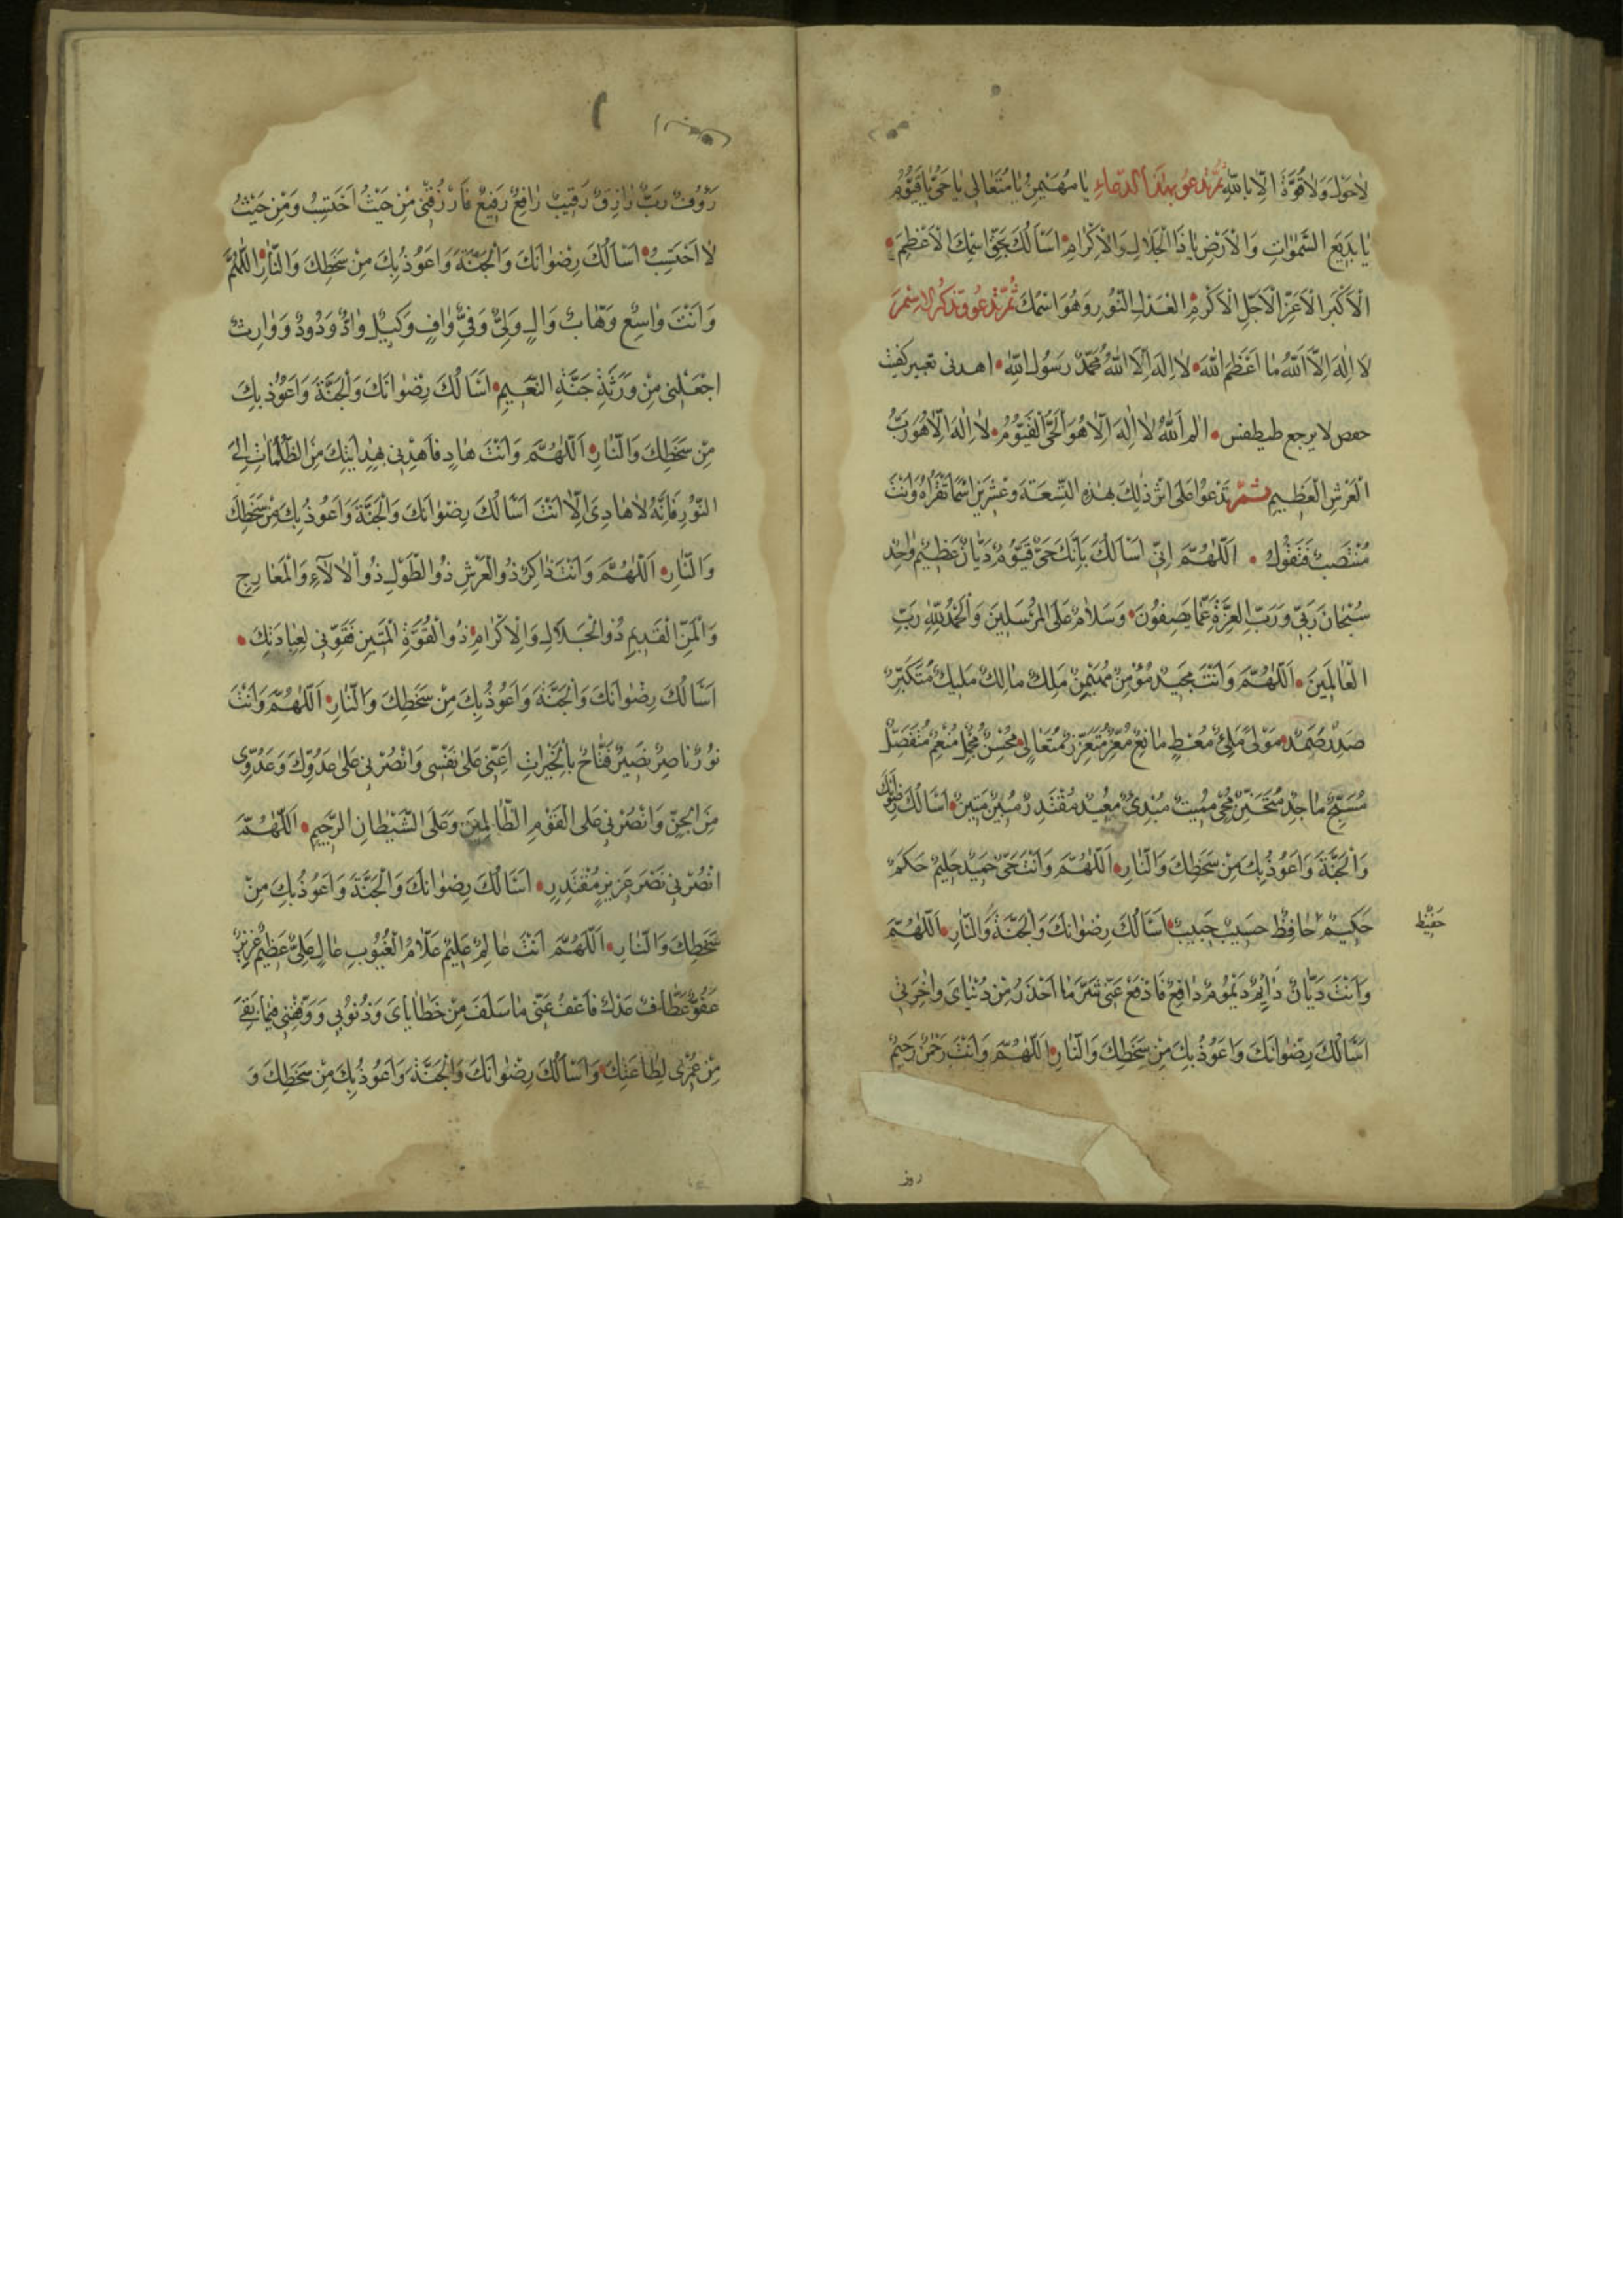 لاحَوْلَ وَلاقُوَّةَ اِلّا بِاللهِ ثُمَّ تَدعُو بِهٰذَا الدّعاءِ يا مُهَيْمِنُ يا مُتَعالى يا حَيُّ يا قَيُّوُمُ
يا بَديعَ السَّمٰوٰاتِ وَ الْاَرْضِ يا ذَا الْجَلالِ وَالْاِكْرٰامِ اَسْاَلُكَ بِحَقِّ اسْمِكَ الْاَعْظَمِ
الْاَكْبَرِ الْاَعَزِّ الْاَجَلِّ الْاَكْرَمِ العَدْلِ النّوُرِ وَهُوَ اسْمُكَ ثُمَّ تَدعُو وتَذكُرُ الاسْمَ
لا اِلٰهَ اِلاَّ اللهُ ما اَعْظَمَ اللهَ لا اِلٰهَ اِلاَّ اللهُ مُحَمَّدٌ رَسُولُ اللهِ اهدنى
حمعص لا يرجع طيطفس الم اَللهُ لا اِلٰهَ اِلّا هُوَ الْحَىُّ الْقَيّوُمُ لا اِلٰهَ اِلّا هُوَ رَبُّ
الْعَرْشِ الْعَظيمِ ثُمَّ تَدْعوُا عَلى اَثَرِ ذٰلِكَ بِهٰذِهِ التِّسْعَةَ وَعِشْرينَ اسْمًا تَقْرَاُهُ وَاَنْتَ
مُنْتَصِبٌ فَتَقُولُ اَللّٰهُمَّ اِنّى اَسْاَلُكَ بِاَنَّكَ حَىٌّ قَيّوُمٌ دَيّانٌ عَظيمٌ واحِدٌ
سُبْحٰانَ رَبّى وَرَبِّ الْعِزَّةِ عَمّا يَصِفُونَ وَ سَلامٌ عَلَى الْمُرْسَلينَ وَالْحَمْدُ لِلّٰهِ رَبِّ
الْعٰالَمينَ اَللّٰهُمَّ وَاَنْتَ مَجيدٌ مُؤْمِنٌ مُهَيْمِنٌ مَلِكٌ مالِكٌ مَليكٌ مُتَكَبِّرٌ
صَمَدٌ مَوْلىً مَلِىٌّ مُعْطٍ مانِعٌ مُعِزٌّ مُتَعَزِّزٌ مُتَعالٍ مُحْسِنٌ مُجْمِلٌ مُنْعِمٌ مُتَفَضِّلٌ
مُسَبِّحٌ ماجِدٌ مُتَحَنِّنٌ مُحْىٍ مُميتٌ مُبْدِئٌ مُعيدٌ مُقْتَدِرٌ مُبينٌ مَتينٌ اَسْاَلُكَ رِضْوٰانَكَ
وَالْجَنَّةَ وَاَعُوذُ بِكَ مِنْ سَخَطِكَ وَالنّٰارِ اَللّٰهُمَّ وَاَنْتَ حَىٌّ حَميدٌ حَليمٌ حَكَمٌ
حَكيمٌ حٰافِظٌ حَسيبٌ حَبيبٌ اَسْاَلُكَ رِضْوٰانَكَ وَالْجَنَّةَ وَالنّٰارِ اَللّٰهُمَّ
حَفيظٌ
وَاَنْتَ دَيّانٌ دٰائِمٌ دَيْمُومٌ دٰافِعٌ فَادْفَعْ عَنّى شَرَّ مٰا اَحْذَرُ مِنْ دُنْيٰاىَ وَاٰخِرَتى
اَسْاَلُكَ رِضْوٰانَكَ وَاَعُوذُ بِكَ مِنْ سَخَطِكَ وَالنّٰارِ اَللّٰهُمَّ وَاَنْتَ رَحْمٰنٌ رَحيمٌ
رَؤُفٌ رَبٌّ رٰازِقٌ رَقيبٌ رٰافِعٌ رَفيعٌ فَارْزُقْنى مِنْ حَيْثُ اَحْتَسِبُ وَمِنْ حَيْثُ
لاٰ اَحْتَسِبُ اَسْاَلُكَ رِضْوٰانَكَ وَالْجَنَّةَ وَاَعُوذُ بِكَ مِنْ سَخَطِكَ وَالنّٰارِ اَللّٰهُمَّ
وَاَنْتَ وٰاسِعٌ وَهّٰابٌ وٰالٍ وَلِىٌّ وَفِىٌّ وٰافٍ وَكيلٌ وٰادٌّ وَدُودٌ وَوٰارِثٌ
اجْعَلْنى مِنْ وَرَثَةِ جَنَّةِ النَّعيمِ اَسْاَلُكَ رِضْوٰانَكَ وَالْجَنَّةَ وَاَعُوْذُ بِكَ
مِنْ سَخَطِكَ وَالنّٰارِ اَللّٰهُمَّ وَاَنْتَ هٰادٍ فَاهْدِنى بِهِدٰايَتِكَ مِنَ الظُّلُمٰاتِ اِلَى
النّوُرِ فَاِنَّهُ لاٰ هٰادِىَ اِلّٰا اَنْتَ اَسْاَلُكَ رِضْوٰانَكَ وَالْجَنَّةَ وَاَعُوذُ بِكَ مِنْ سَخَطِكَ
وَالنّٰارِ اَللّٰهُمَّ وَاَنْتَ ذٰاكِرٌ ذُو الْعَرْشِ ذُو الطَّوْلِ ذُو الْاٰلآءِ وَالْمَعٰارِجِ
وَالْمَنِّ الْقَديمِ ذُو الْجَلاٰلِ وَالْاِكْرٰامِ ذُو الْقُوَّةِ الْمَتينِ فَقَوِّنى لِعِبٰادَتِكَ
اَسْاَلُكَ رِضْوٰانَكَ وَالْجَنَّةَ وَاَعُوذُ بِكَ مِنْ سَخَطِكَ وَالنّٰارِ اَللّٰهُمَّ وَاَنْتَ
نُورٌ نٰاصِرٌ نَصيرٌ فَتّٰاحٌ بِالْخَيْرٰاتِ اَعِنّى عَلىٰ نَفْسى وَانْصُرْنى عَلىٰ عَدُوِّكَ وَعَدُوّى
مِنَ الْجِنِّ وَانْصُرْنى عَلَى الْقَوْمِ الظّٰالِمينَ وَعَلَى الشَّيْطٰانِ الرَّجيمِ اَللّٰهُمَّ
انْصُرْنى نَصْرَ عَزيزٍ مُقْتَدِرٍ اَسْاَلُكَ رِضْوٰانَكَ وَالْجَنَّةَ وَاَعُوذُ بِكَ مِنْ
سَخَطِكَ وَالنّٰارِ اَللّٰهُمَّ اَنْتَ عٰالِمٌ عَليمٌ عَلّٰامُ الْغُيُوبِ عٰالٍ عَلِىٌّ عَظيمٌ عَزيزٌ
عَفُوٌّ عَطّٰافٌ عَدْلٌ فَاعْفُ عَنّى مٰا سَلَفَ مِنْ خَطٰايٰاىَ وَذُنُوبى وَوَفِّقْنى فيمٰا بَقِىَ
مِنْ عُمْرى لِطٰاعَتِكَ وَاَسْاَلُكَ رِضْوٰانَكَ وَالْجَنَّةَ وَاَعُوذُ بِكَ مِنْ سَخَطِكَ وَ